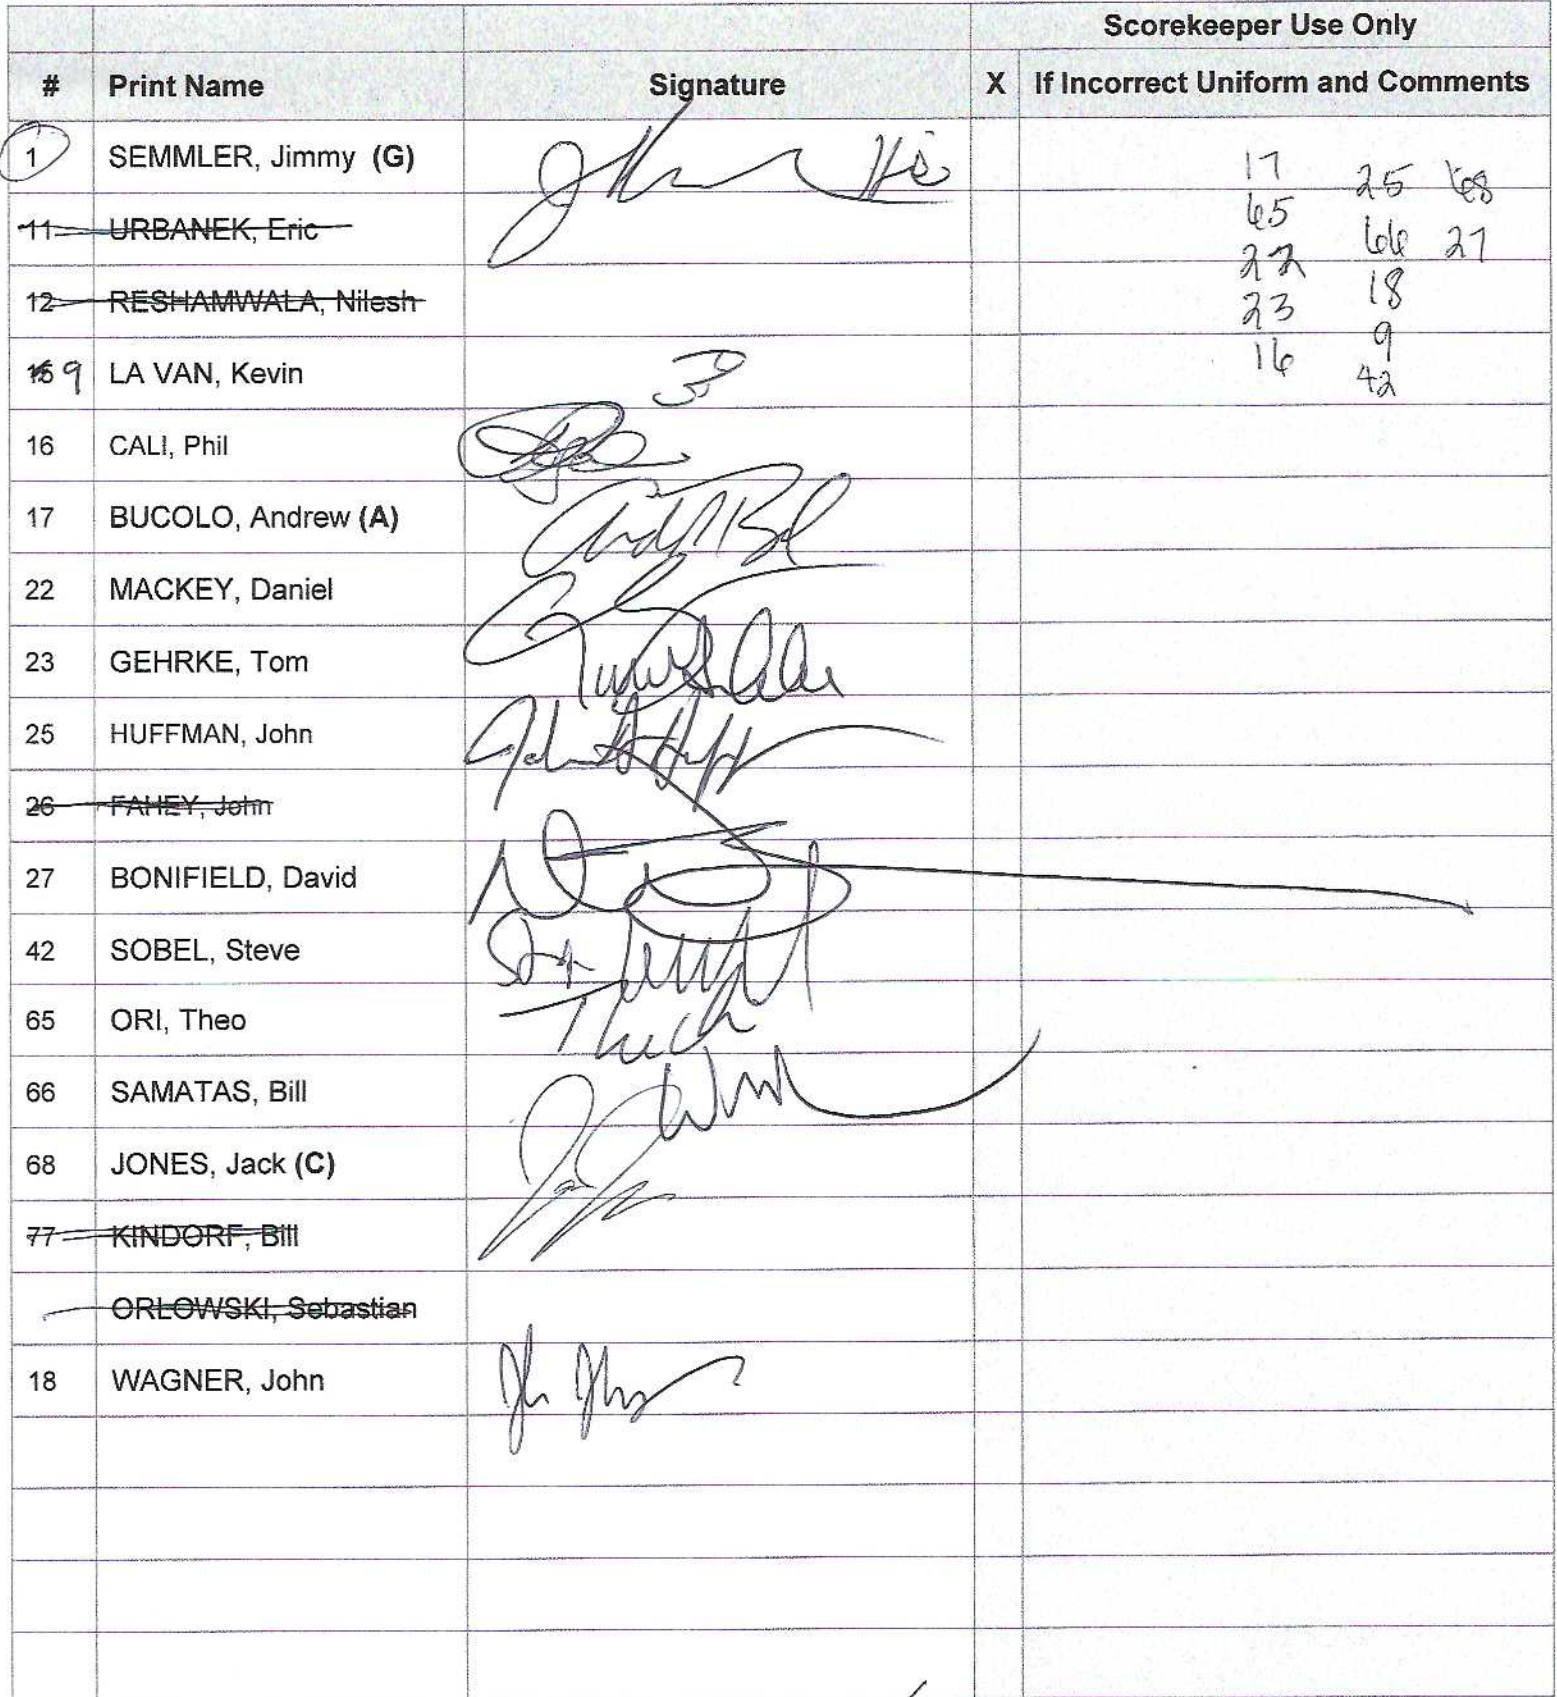 Scorekeeper Use Only
# Print Name Signature X If Incorrect Uniform and Comments
1 SEMMLER, Jimmy (G) 17 25 68
11 URBANEK, Eric 65 66 27
12 RESHAMWALA, Nilesh 22 18
9 LA VAN, Kevin 23 9
16 CALI, Phil 16 42
17 BUCOLO, Andrew (A)
22 MACKEY, Daniel
23 GEHRKE, Tom
25 HUFFMAN, John
26 FAHEY, John
27 BONIFIELD, David
42 SOBEL, Steve
65 ORI, Theo
66 SAMATAS, Bill
68 JONES, Jack (C)
77 KINDORF, Bill
ORLOWSKI, Sebastian
18 WAGNER, John